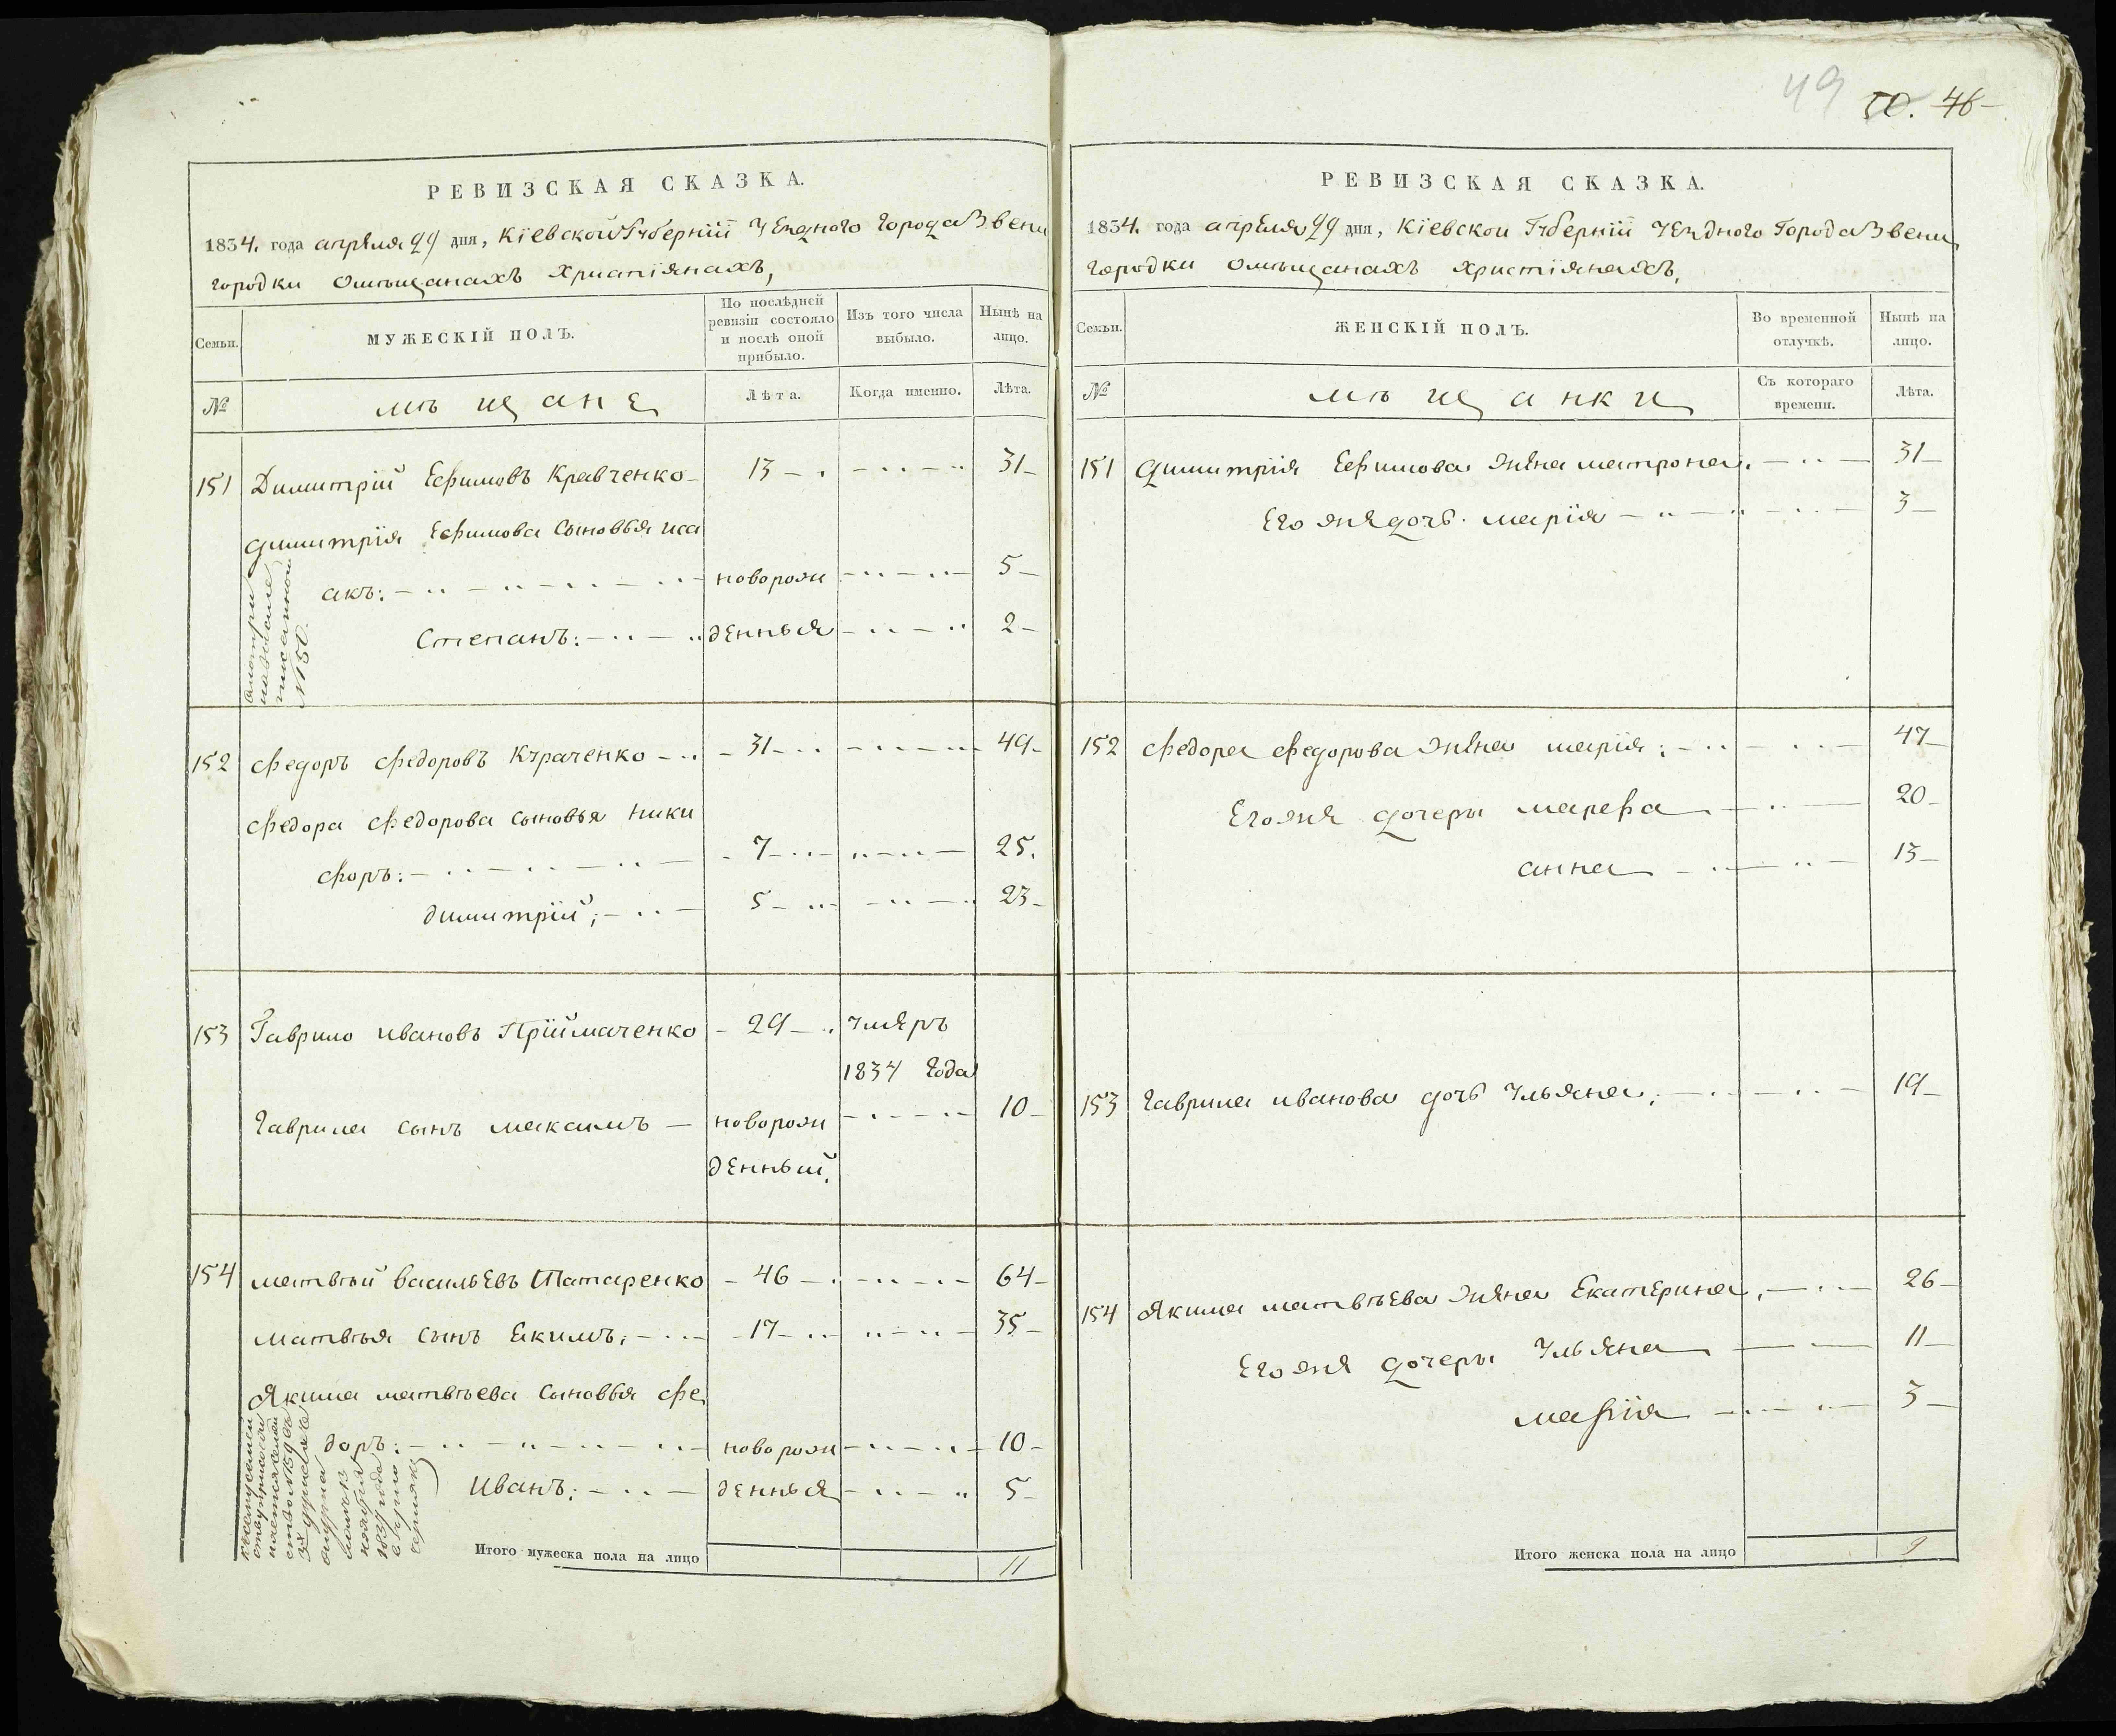 49 50. 46
РЕВИЗСКАЯ СКАЗКА.
1834. года апреля 29 дня, Кіевской Губерніи Уезднаго города Звени
городки о мѣщанахъ христіянахъ,
Семьи.
МУЖЕСКІЙ ПОЛЪ.
По послѣдней ревизіи состояло и послѣ оной прибыло.
Изъ того числа выбыло.
Нынѣ на лицо.
№
мѣщане
Лѣта.
Когда именно.
Лѣта.
151 Димитрій Ефимовъ Кравченко 13 31
Димитрія Ефимова сыновья иса
акъ: новорож 5
Степанъ: денныя 2
№ 150
152 Федоръ Федоровъ Кураченко 31 49
Федора Федорова сыновья Ники
форъ: 7 25.
димитрій; 5 23
153 Гаврило ивановъ Пріймаченко 29 умеръ
1834 года
Гаврила сынъ максимъ новорож 10
денный.
154 матвѣй васильевъ Татаренко 46 64
матвѣя сынъ Екимъ, 17 35
Якима матвѣева сыновья фе
доръ: новорож 10
Иванъ: денныя 5
Итого мужеска пола на лицо 11
РЕВИЗСКАЯ СКАЗКА.
1834. года апреля 29 дня, Кіевской Губерніи Уездного города Звени
городки о мѣщанахъ христіянахъ,
Семьи.
ЖЕНСКІЙ ПОЛЪ.
Во временной отлучкѣ.
Нынѣ на лицо.
№
мѣщанки
Съ котораго времени.
Лѣта.
151 Димитрія Ефимова жена матрона, 31
Его же дочь марія 3
152 Федора Федорова жена марія: 47
Его же дочеры марфа 20
анна 13
153 Гаврила иванова дочь Ульяна, 19
154 Якима матвѣева жена Екатерина, 26
Его же дочеры Ульяна 11
марія 3
Итого женска пола на лицо 9